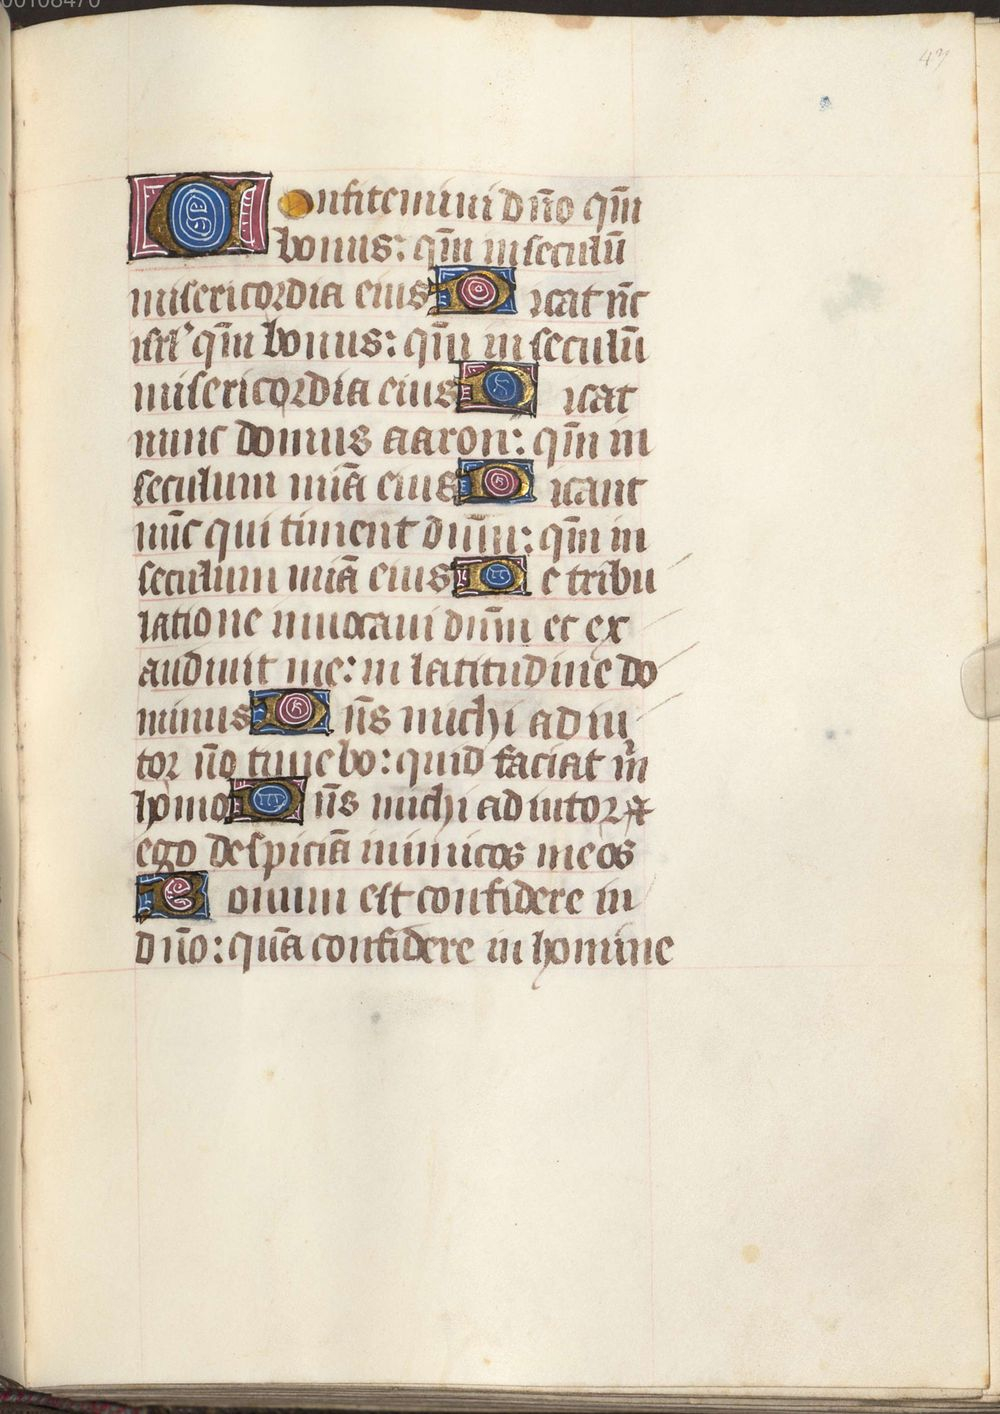 00108470
47
Confitemini dño qm̃
bonus: qm̃ in seculũ
misericordia eius Dicat nc̃
isrl' qm̃ bonus: qm̃ in seculũ
misericordia eius Dicat
nunc domus aaron: qm̃ in
seculum miã eius Dicant
nũc qui timent dnm̃: qm̃ in
seculum miã eius De tribu
latione inuocaui dnm̃ et ex
audiuit me: in latitudine do
minus Dñs michi adiu
tor nõ timebo: quid faciat m̃
homo Dñs michi adiutor &
ego despiciã inimicos meos
Bonum est confidere in
dño: quã confidere in homine